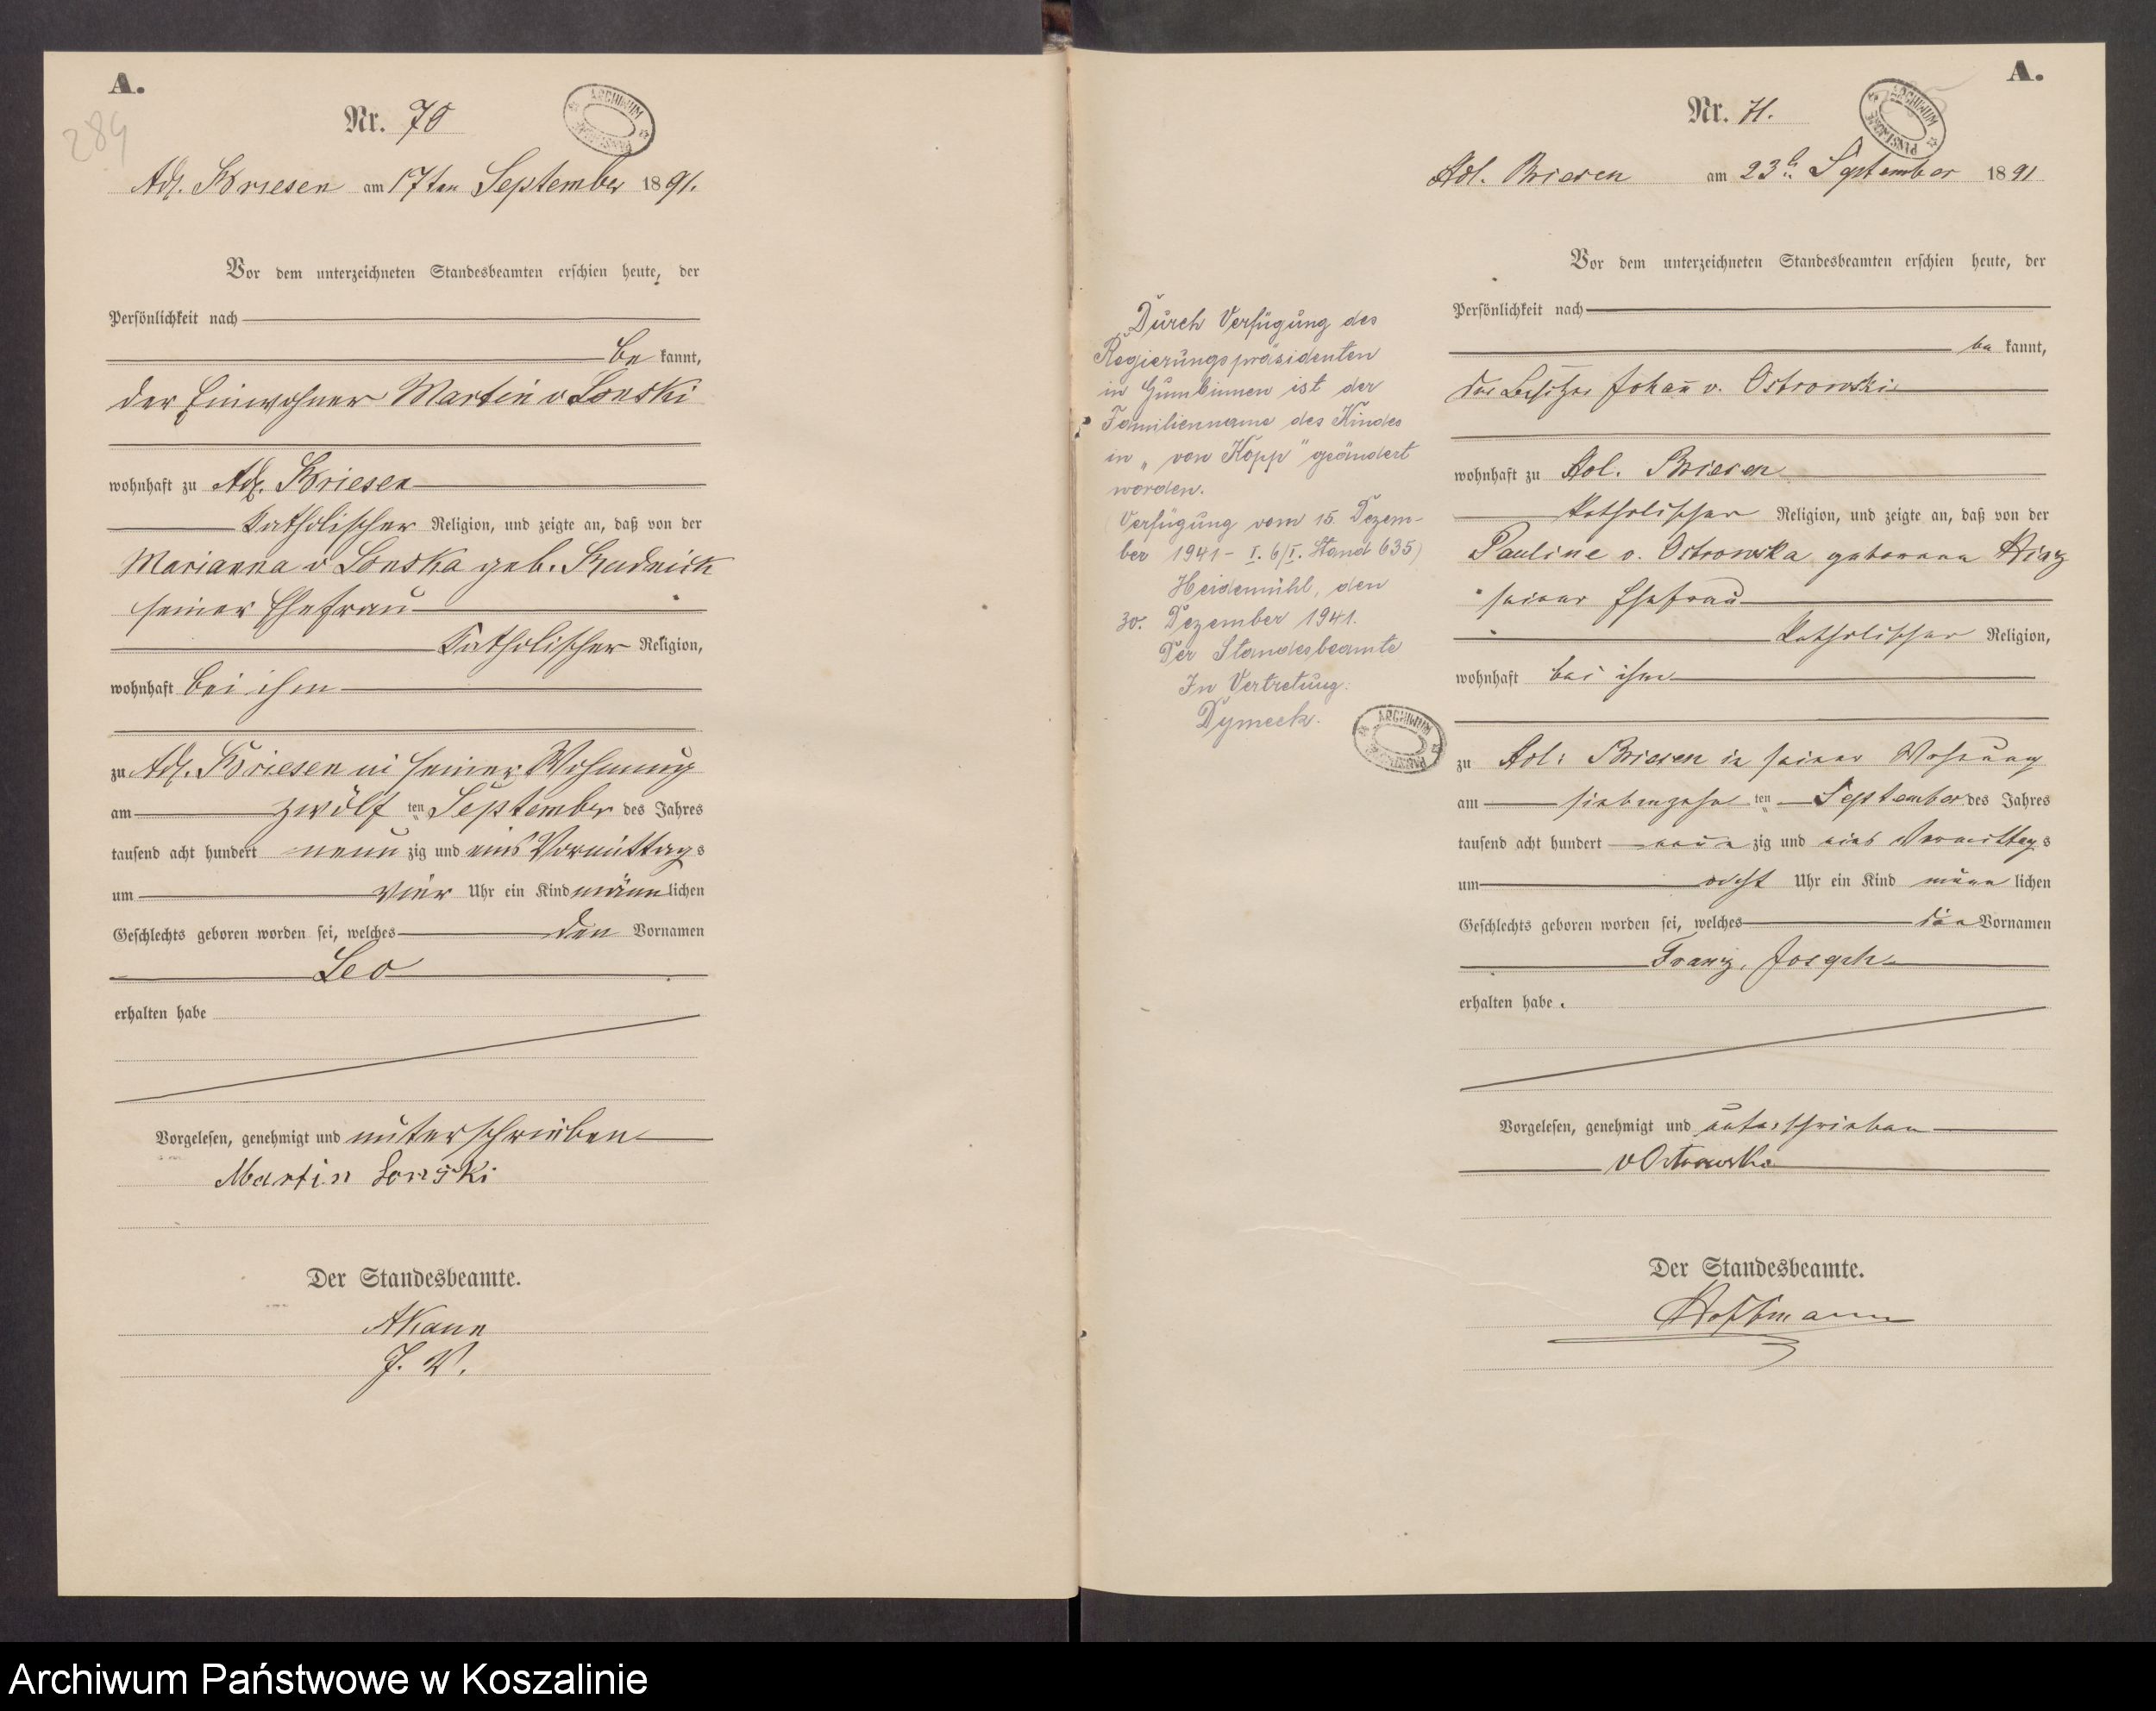 A.
289
Nr. 70
ARCHIWUM PAŃSTWOWE
Adl. Briesen am 17ten September 1891.
Vor dem unterzeichneten Standesbeamten erschien heute, der
Persönlichkeit nach
be kannt,
der Einwohner Martin v Lonski
wohnhaft zu Adl. Briesen
katholischer Religion, und zeigte an, daß von der
Marianna v Lonska geb. Rudnick
seiner Ehefrau
katholischer Religion,
wohnhaft bei ihm
zu Adl. Briesen in seiner Wohnung
am zwölf ten September des Jahres
tausend acht hundert neun zig und eins Vormittags
um vier Uhr ein Kind männ lichen
Geschlechts geboren worden sei, welches den Vornamen
Leo
erhalten habe
Vorgelesen, genehmigt und unterschrieben
Martin Lonski
Der Standesbeamte.
J. V.
A.
Nr. 71.
ARCHIWUM PAŃSTWOWE
Adl. Briesen am 23t. September 1891
Vor dem unterzeichneten Standesbeamten erschien heute, der
Persönlichkeit nach
be kannt,
der Besitzer Johan̄ v. Ostrowski
wohnhaft zu Adl. Briesen
katholischer Religion, und zeigte an, daß von der
Pauline v. Ostrowska geborene
seiner Ehefrau
katholischer Religion,
wohnhaft bei ihm
zu Adl: Briesen in seiner Wohnung
am siebenzehn ten September des Jahres
tausend acht hundert neun zig und eins Vormittags
um acht Uhr ein Kind männ lichen
Geschlechts geboren worden sei, welches die Vornamen
Franz, Joseph
erhalten habe.
Vorgelesen, genehmigt und unterschrieben
v Ostrowski
Der Standesbeamte.
Hoffmann
Durch Verfügung des
Regierungspräsidenten
in Gumbinnen ist der
Familienname des Kindes
in „von Kopp" geändert
worden.
(Verfügung vom 15. Dezem-
ber 1941 - I. 6/I. Stand 635)
Heidemühl, den
30. Dezember 1941.
Der Standesbeamte
In Vertretung:
Dymeck.
ARCHIWUM PAŃSTWOWE
Archiwum Państwowe w Koszalinie